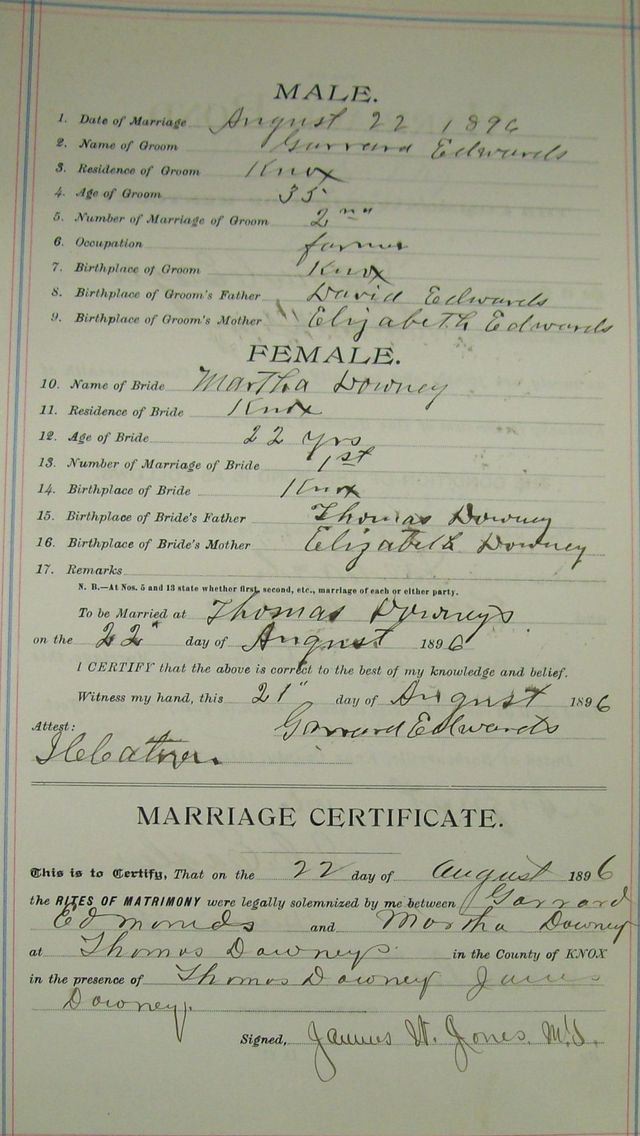 MALE.
1. Date of Marriage August 22 1896
2. Name of Groom Garrard Edwards
3. Residence of Groom Knox
4. Age of Groom 35
5. Number of Marriage of Groom 2nd
6. Occupation farmer
7. Birthplace of Groom Knox
8. Birthplace of Groom's Father David Edwards
9. Birthplace of Groom's Mother Elizabeth Edwards
FEMALE.
10. Name of Bride Martha Downey
11. Residence of Bride Knox
12. Age of Bride 22 yrs
13. Number of Marriage of Bride 1st
14. Birthplace of Bride Knox
15. Birthplace of Bride's Father Thomas Downey
16. Birthplace of Bride's Mother Elizabeth Downey
17. Remarks
N. B.—At Nos. 5 and 13 state whether first, second, etc., marriage of each or either party.
To be Married at Thomas Downeys
on the 22" day of August 1896
I CERTIFY that the above is correct to the best of my knowledge and belief.
Witness my hand, this 21" day of August 1896
Garrard Edwards
Attest:
MARRIAGE CERTIFICATE.
This is to Certify, That on the 22 day of August 1896
the RITES OF MATRIMONY were legally solemnized by me between Garrard
Edmonds and Martha Downey
at Thomas Downeys in the County of KNOX
in the presence of Thomas Downey James
Downey.
Signed, James W. Jones.